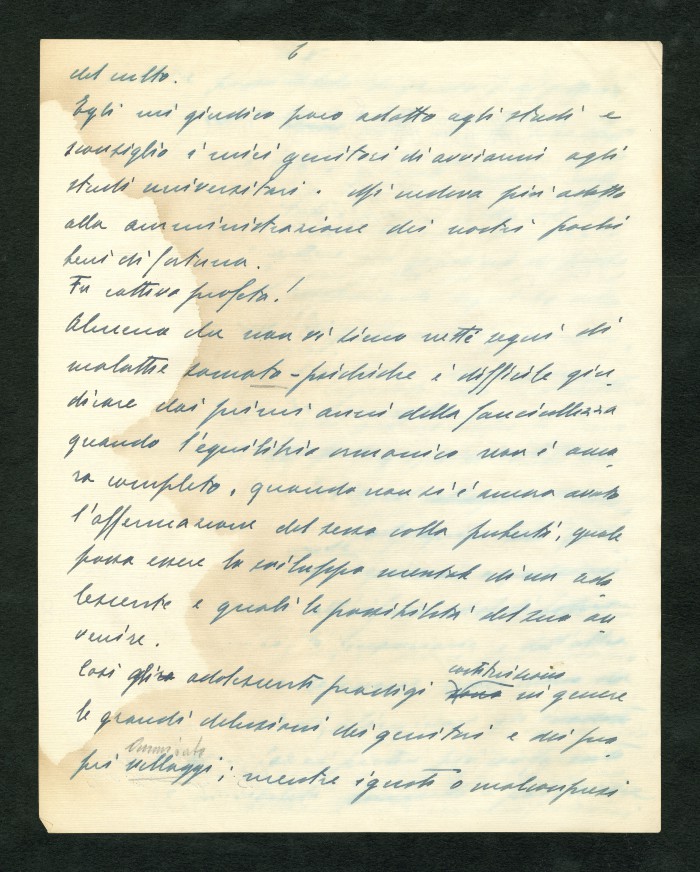 6
del culto.
Egli mi giudicò poco adatto agli studi e
sconsigliò i miei genitori di avviarmi agli
studi universitari. Mi vedeva più adatto
alla amministrazione dei nostri pochi
beni di fortuna.
Fu cattivo profeta!
Almeno che non vi siano netti segni di
malattie somato-psichiche è difficile giu-
dicare dai primi anni della fanciullezza
quando l'equilibrio ormonico non è anco-
ra completo, quando non si è ancora avuta
l'affermazione del sesso colla pubertà, quale
possa essere lo sviluppo mentale di un ado-
lescente e quali le possibilità del suo av-
venire.
Così gli adolescenti prodigi costituiscono in genere
le grandi delusioni dei genitori e dei pro-
pri villaggi; mentre ignoti o malcompresi